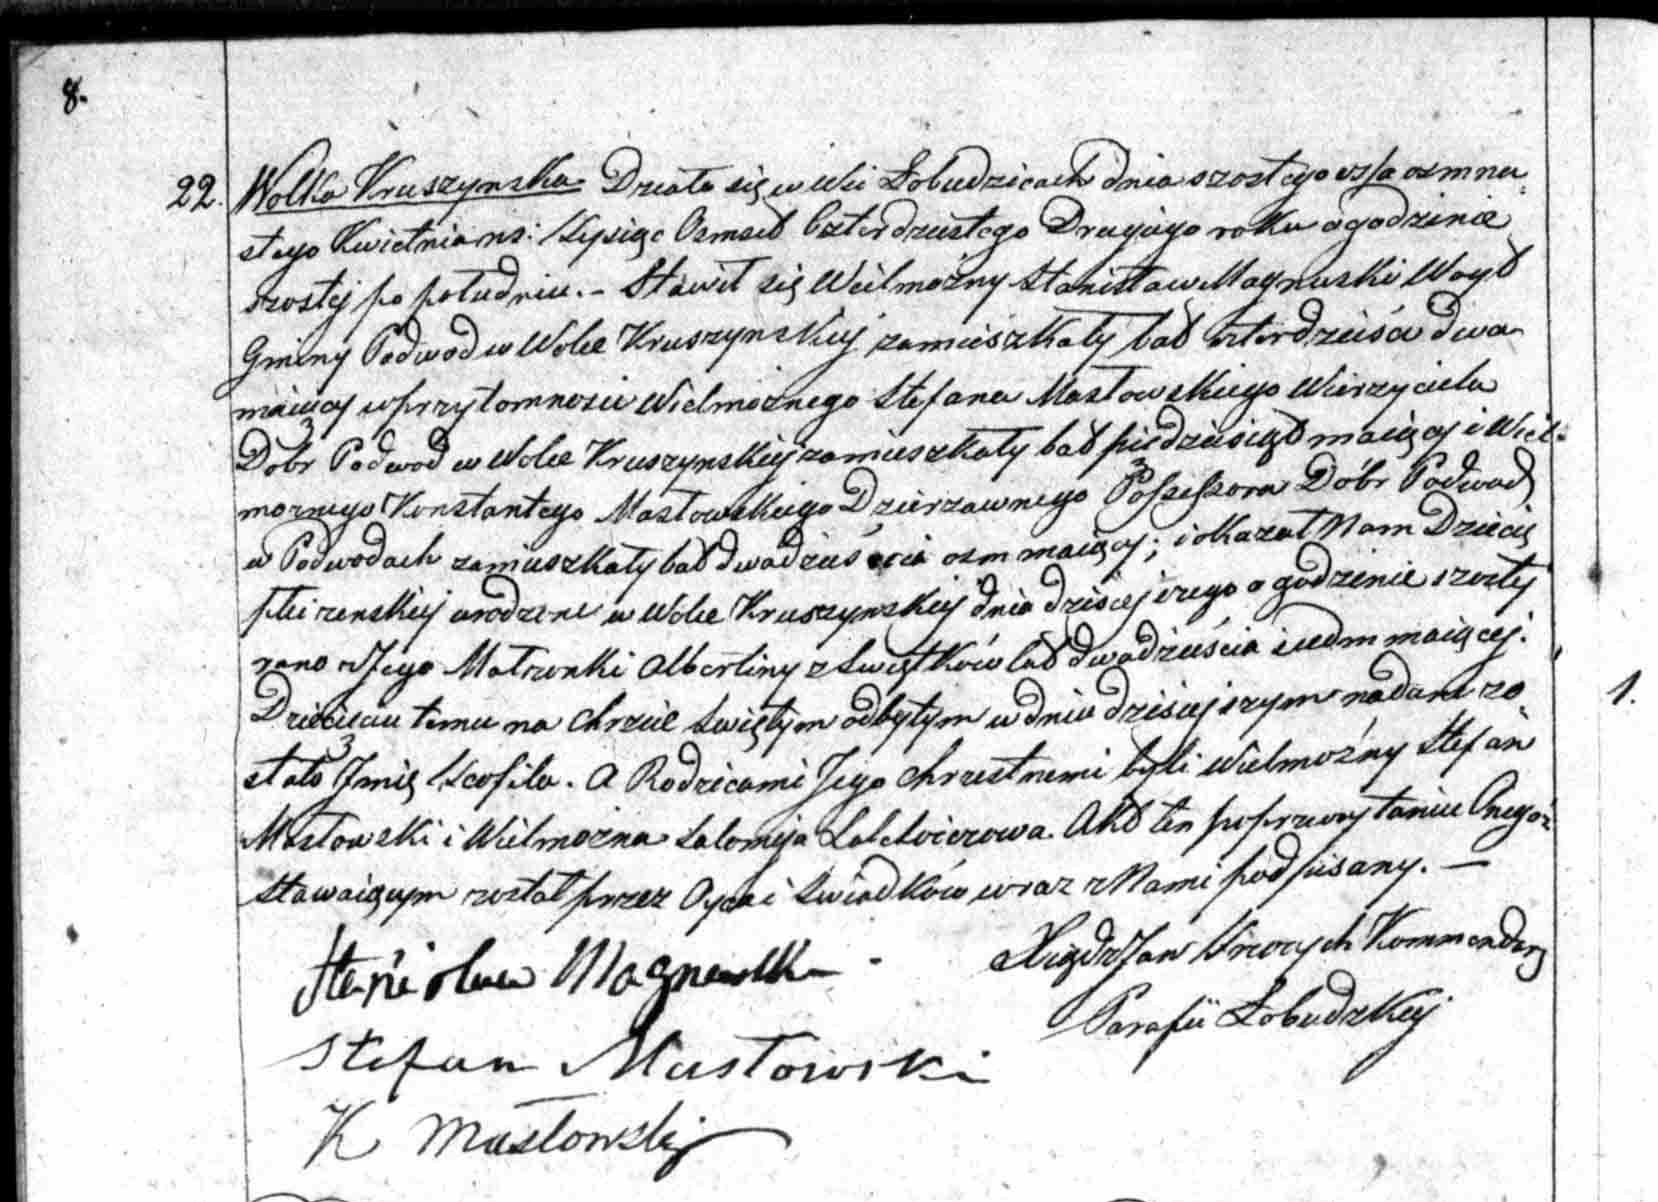 8.
22. Wolka Kruszynska Działo się w Wsi Łobudzicach dnia szostego v/s/a osmna
stego Kwietnia n:s: Tysiąc Osmset Czterdziestego Drugiego roku o godzinie
szostej po południu. – Stawił się Wielmożny Stanisław Magnuski Woyt
Gminy Podwod w Wolce Kruszynskiej zamieszkały lat czterdzieści dwa
maiący w przytomnosci Wielmożnego Stefana Masłowskiego Wierzyciela
Dobr Podwod w Wolce Kruszynskiej zamieszkały lat piędziesiąt maiący i Wiel-
mornego Konstantego Masłowskiego Dzierzawnego Possessora Dóbr Podwod
w Podwodach zamieszkały lat dwadzieścia osm maiący; i okazał Nam Dziecię
płci zenskiej urodzone w Wolce Kruszynskiej dnia dzisiejszego o godzinie szostej
rano z Jego Małżonki Albertiny z Swiętków lat dwadzieścia siedm maiącej.
Dziecięciu temu na chrzcie swiętym odbytym w dniu dzisiejszym nadane zo
stało Jmię Teofila. a Rodzicami Jego chrzestnemi byli Wielmożny Stefan
Masłowski i Wielmożna Salomeja. Akt ten po przeczytaniu Onegoż
stawaiącym został przez Oyca i Swiadków wraz z Nami podpisany. —
Stanisław Magnuski
Xiądz Jan Kommendarz
Parafii Łobudzkiej
Stefan Masłowski
K Masłowski
1.